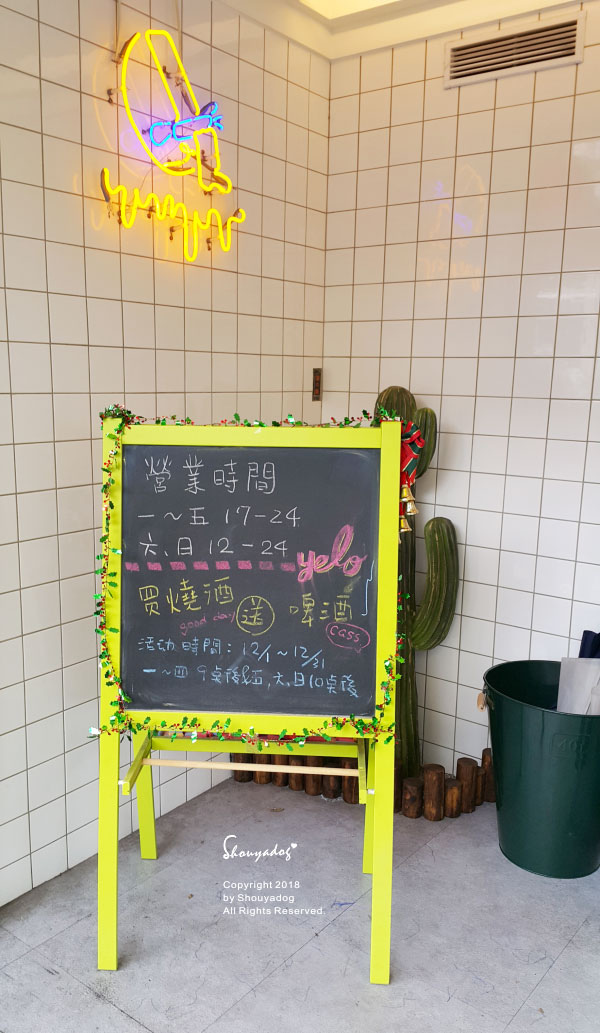 營業時間
一～五 17-24
六、日 12-24
yelo
買燒酒 送 啤酒
good day
cass
活动時間：12/1～12/31
一～四 9桌後&五,六,日10桌後
Shouyadog
Copyright 2018
by Shouyadog
All Rights Reserved.